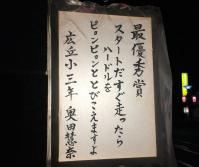 最優秀賞
スタートだすぐ走ったら
ハードルを
ピョンピョンととびこえますよ
広丘小三年 奥田慧奈